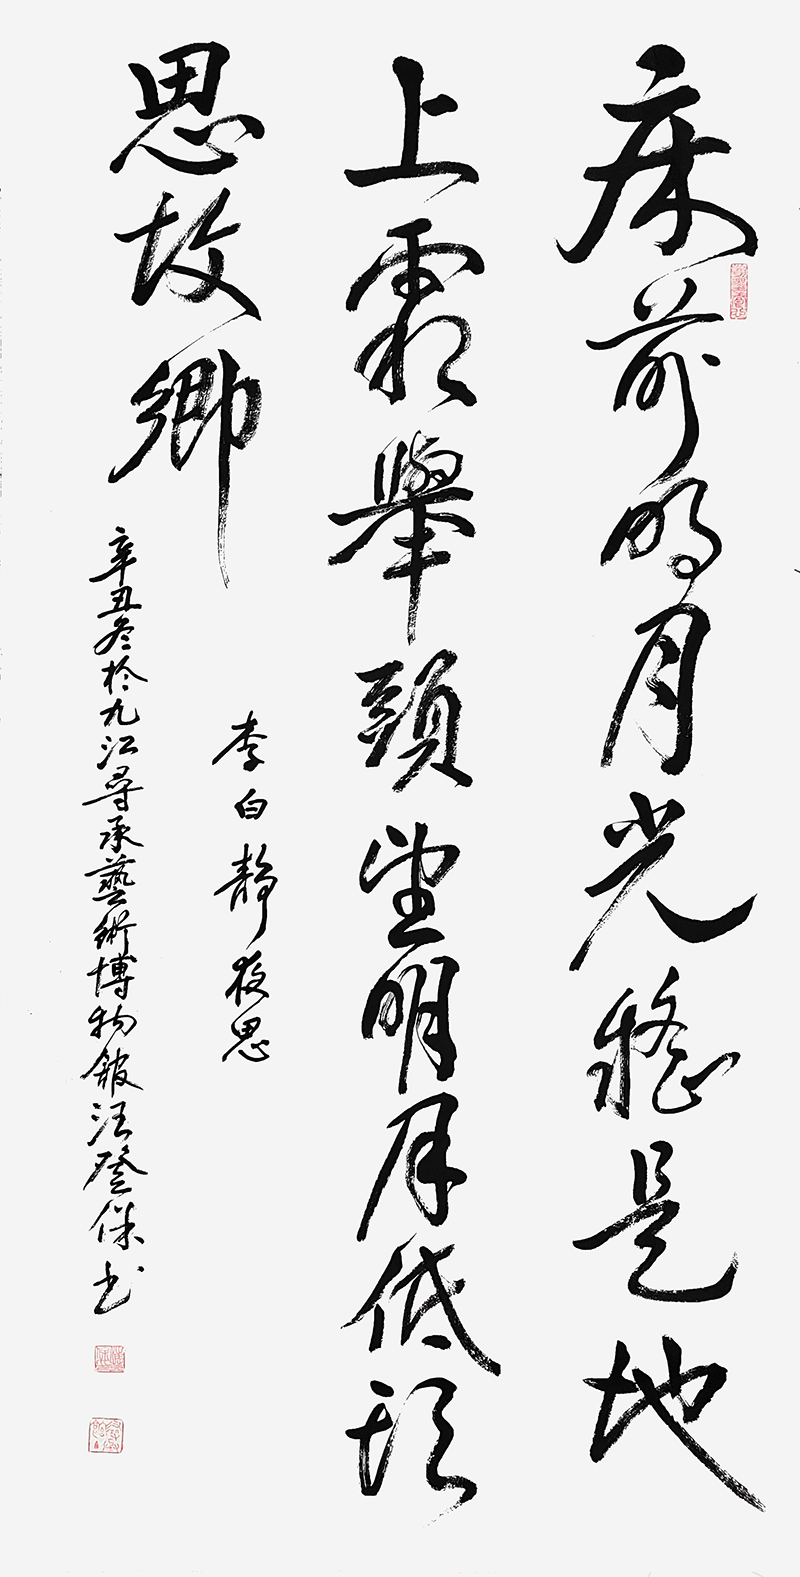 床前明月光疑是地
上霜舉頭望明月低頭
思故鄉
李白靜夜思
辛丑冬於九江尋承藝術博物館汪登保书